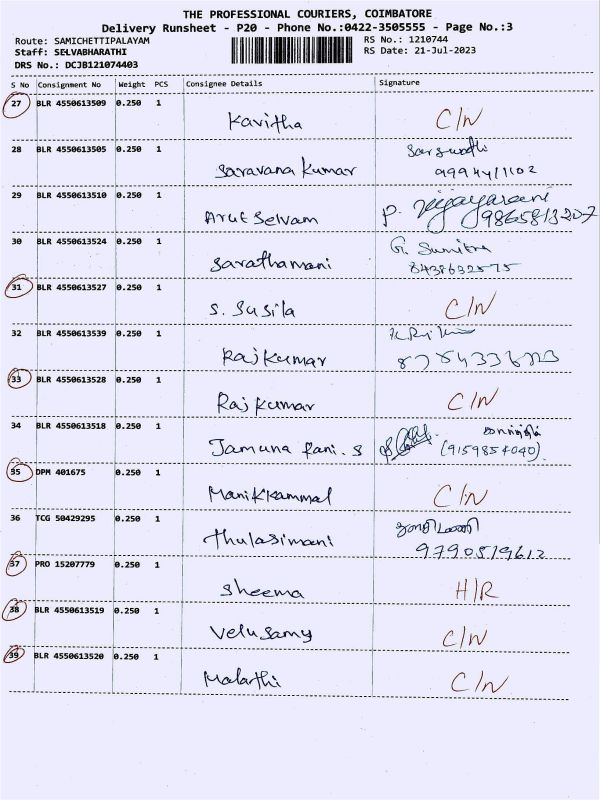 THE PROFESSIONAL COURIERS, COIMBATORE
Delivery Runsheet - P20 - Phone No.:0422-3505555 - Page No.:3
Route: SAMICHETTIPALAYAM RS No.: 1210744
Staff: SELVABHARATHI RS Date: 21-Jul-2023
DRS No.: DCJB121074403
S No Consignment No Weight PCS Consignee Details Signature
27 BLR 4550613509 0.250 1 Kavitha C/N
28 BLR 4550613505 0.250 1 Saravana Kumar
29 BLR 4550613510 0.250 1 Arut Selvam P. Vijayarani 9865813207
30 BLR 4550613524 0.250 1 Sarathamani G. Sumitra 8438632575
31 BLR 4550613527 0.250 1 S. Susila C/N
32 BLR 4550613539 0.250 1 Rajkumar
33 BLR 4550613528 0.250 1 Rajkumar C/N
34 BLR 4550613518 0.250 1 Jamuna Rani. S (9159854040)
35 DPM 401675 0.250 1 Manikkammal C/N
36 TCG 50429295 0.250 1 Thulasimani 9790519612
37 PRO 15207779 0.250 1 Sheema H/R
38 BLR 4550613519 0.250 1 Velusamy C/N
39 BLR 4550613520 0.250 1 Malarthi C/N